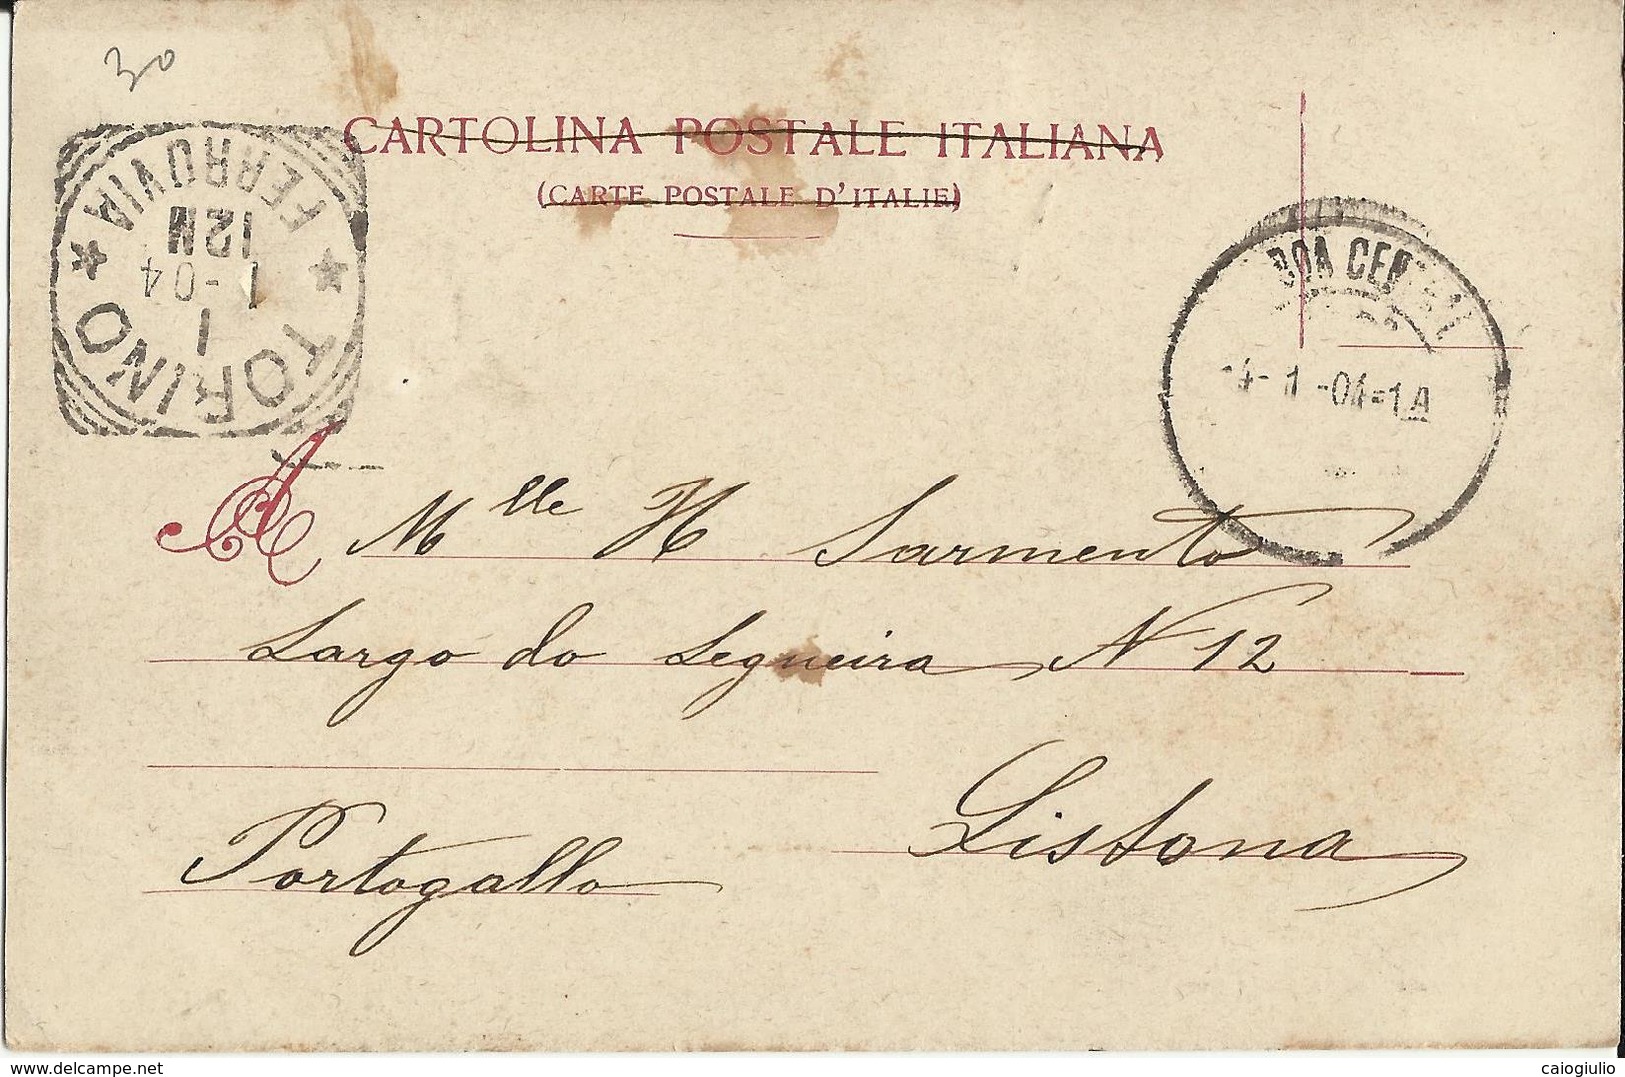 30
CARTOLINA POSTALE ITALIANA
(CARTE POSTALE D'ITALIE)
TORINO
FERROVIA
1
1-04
12M
BOA CENTRAL
4-1-04-1A
A Mlle H Sarmento
Largo do Sequeira N 12
Lisbona
Portogallo
delcampe.net
caiogiulio